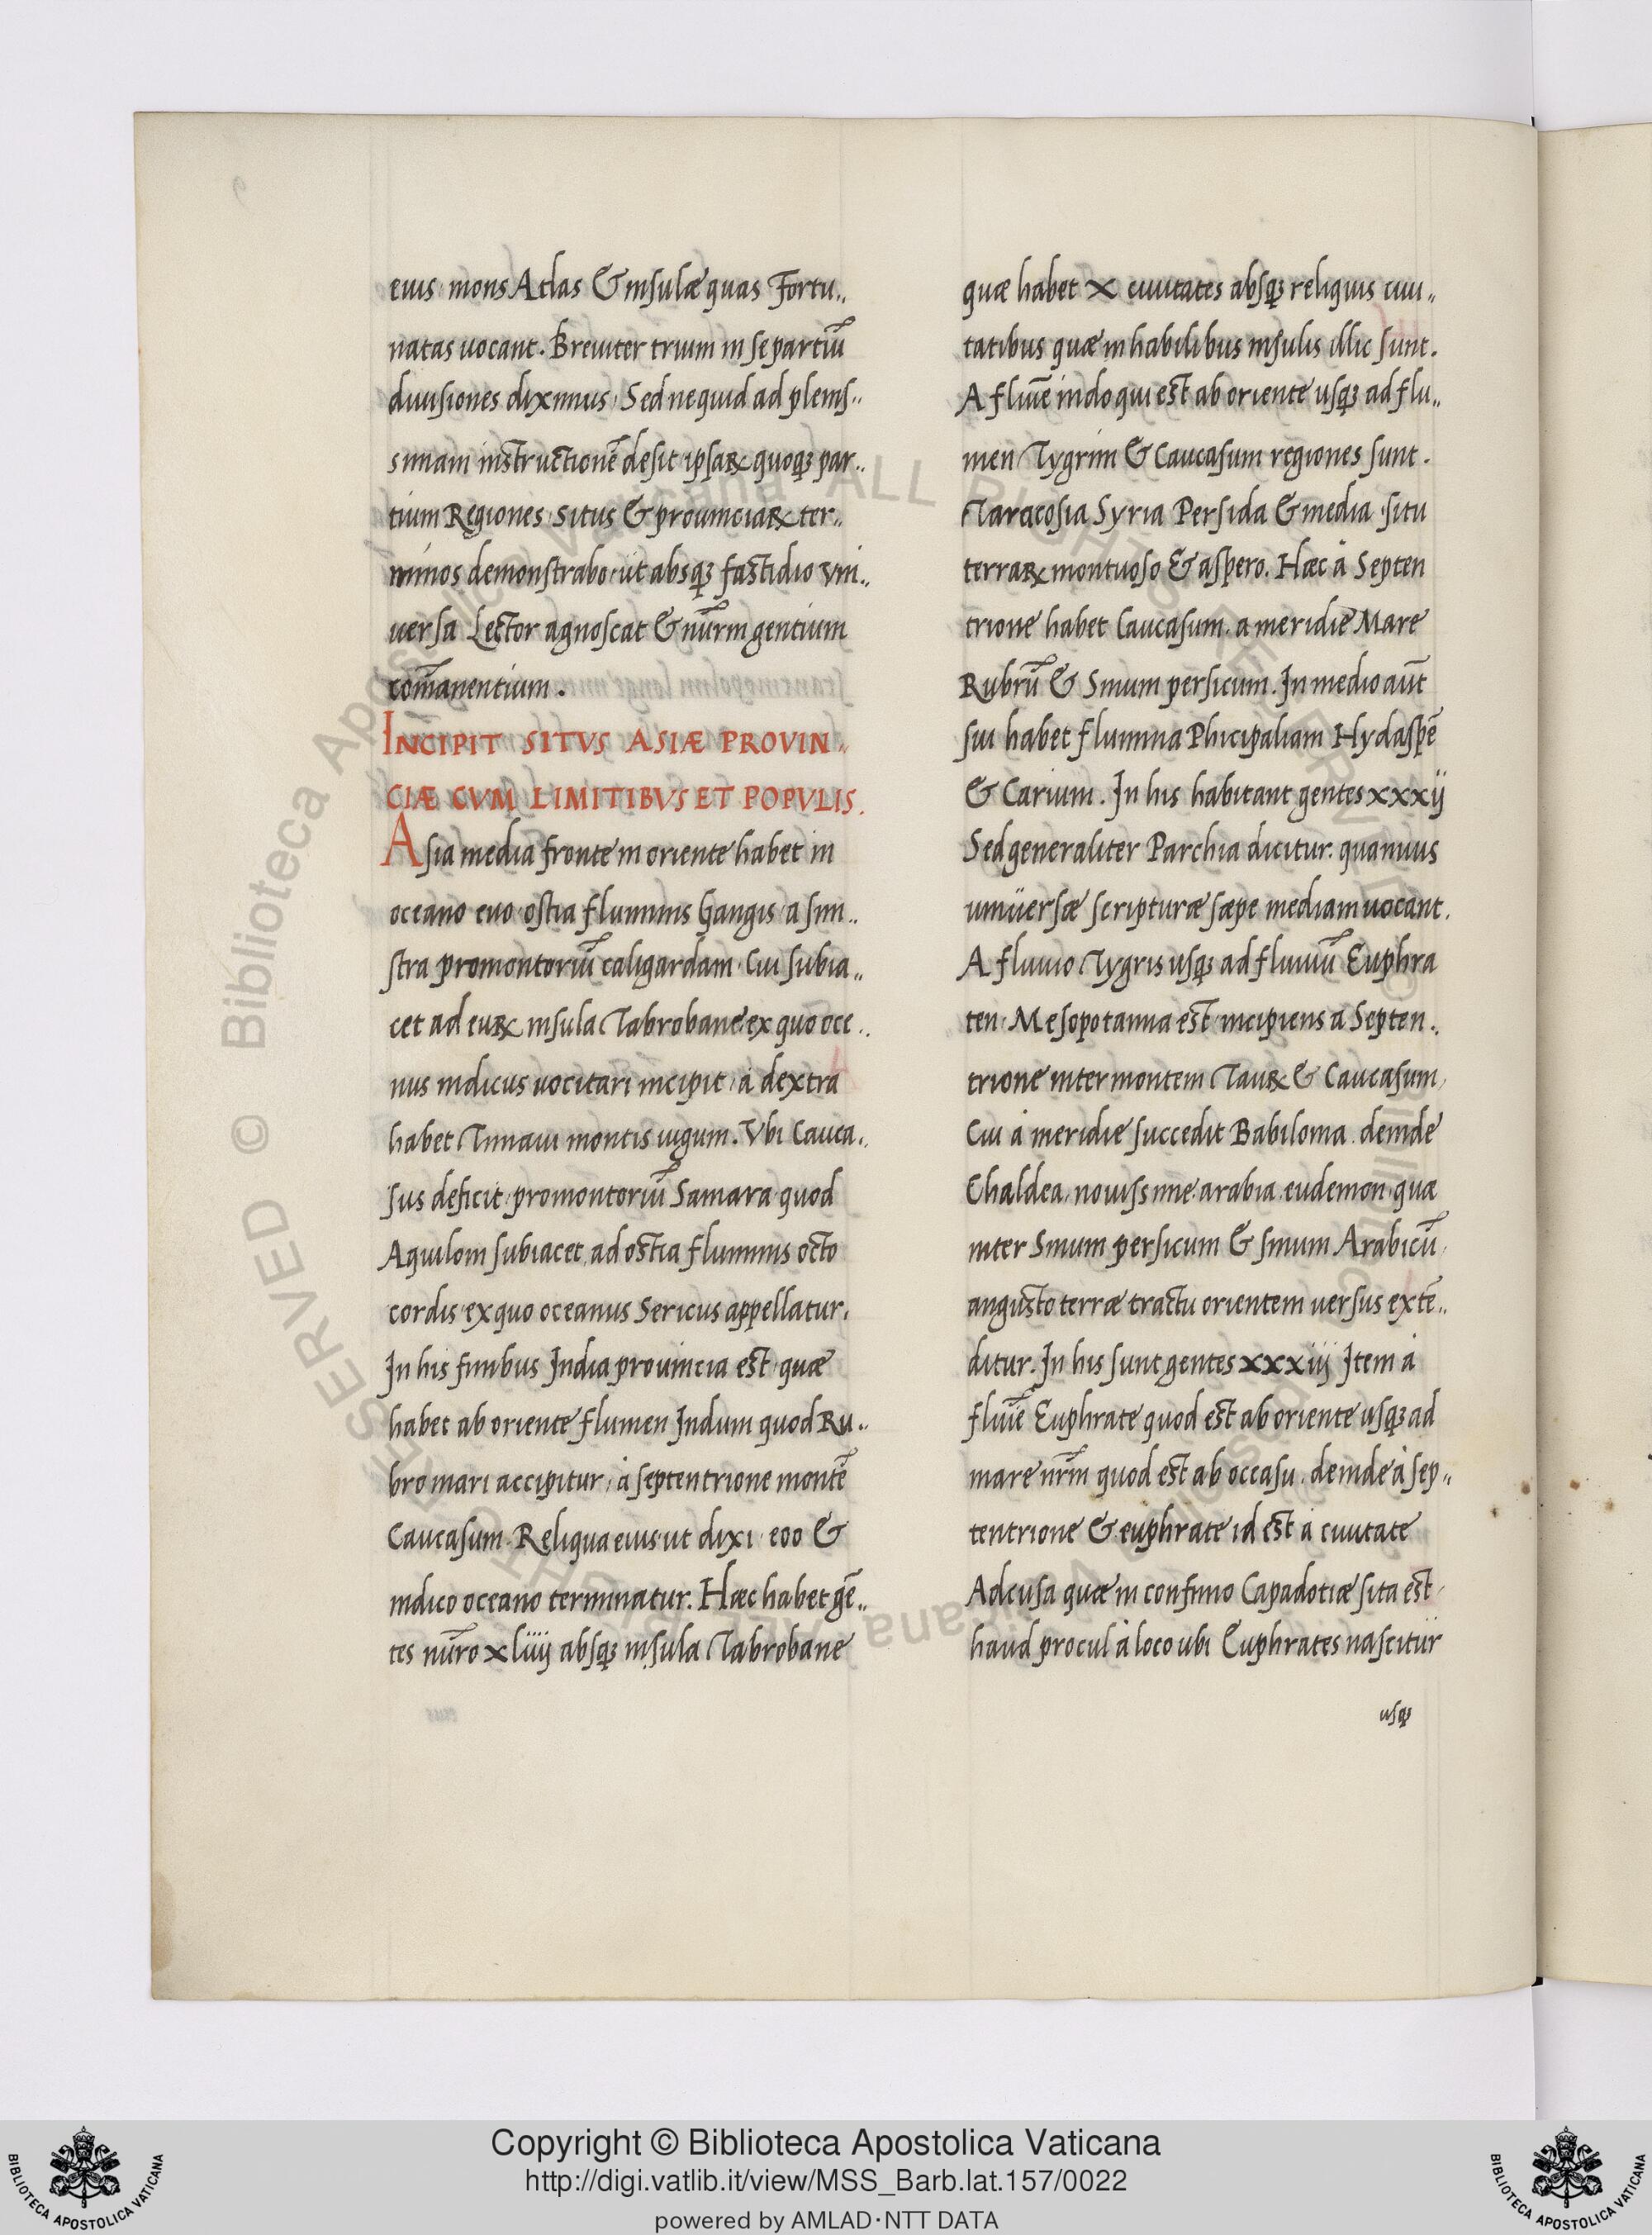 eius mons Atlas & insulæ quas Fortu..
natas uocant. Breuiter trium in se partiū
diuisiones diximus, Sed ne quid ad plenis..
simam instructionē desit ipsaꝝ quoqꝫ par..
tium Regiones situs & prouinciaꝝ ter..
minos demonstrabo, ut absqꝫ fastidio vni..
uersa Lector agnoscat & nūrm gentium
com̄anentium.
INCIPIT SITVS ASIÆ PROVIN..
CIÆ CVM LIMITIBVS ET POPVLIS.
Asia media fronte in oriente habet in
oceano euo ostia fluminis Gangis, a sini..
stra promontoriū caligardam. Cui subia..
cet ad euꝝ insula Tabrobane, ex quo oce..
nus indicus uocitari incipit, à dextra
habet Tmaui montis iugum. Vbi Cauca..
sus deficit, promontoriū Samara quod
Aquiloni subiacet, ad ostia fluminis octo
cordis, ex quo oceanus Sericus appellatur.
In his finibus India prouincia est, quæ
habet ab oriente flumen Indum quod Ru..
bro mari accipitur, à septentrione montē
Caucasum. Reliqua eius ut dixi eoo &
indico oceano terminatur. Hæc habet gē..
tes nūro xliiij absqꝫ insula Tabrobane
quæ habet X ciuitates absqꝫ reliquis ciui..
tatibus quæ in habilibus insulis illic sunt.
A fluīe indo qui est ab oriente usqꝫ ad flu..
men Tygrim & Caucasum regiones sunt.
Taracosia Syria Persida & media, situ
terraꝝ montuoso & aspero. Hæc à Septen
trione habet Caucasum, a meridie Mare
Rubrū & Sinum persicum. In medio aūt
sui habet flumina Phicipaliam Hydaspē
& Carium. In his habitant gentes xxxij
Sed generaliter Parchia dicitur, quamuis
uniuersæ scripturæ sæpe mediam uocant.
A fluuio Tygris usqꝫ ad fluuiū Euphra
ten. Mesopotamia est incipiens a Septen..
trione inter montem Tauꝝ & Caucasum,
Cui à meridie succedit Babilonia, deinde
Chaldea, nouissime arabia eudemon, quæ
inter Sinum persicum & sinum Arabicū,
angusto terræ tractu orientem uersus extē..
ditur. In his sunt gentes xxxiij Item à
fluīe Euphrate quod est ab oriente usqꝫ ad
mare nrm̄ quod est ab occasu, deinde à sep..
tentrione & euphrate id est à ciuitate
Adcusa quæ in confinio Capadotiæ sita est,
haud procul à loco ubi Euphrates nascitur
usqꝫ
© Biblioteca Apostolica Vaticana ALL RIGHTS RESERVED
© Biblioteca Apostolica Vaticana ALL RIGHTS RESERVED
Copyright © Biblioteca Apostolica Vaticana
http://digi.vatlib.it/view/MSS_Barb.lat.157/0022
powered by AMLAD·NTT DATA
BIBLIOTECA APOSTOLICA VATICANA
BIBLIOTECA APOSTOLICA VATICANA